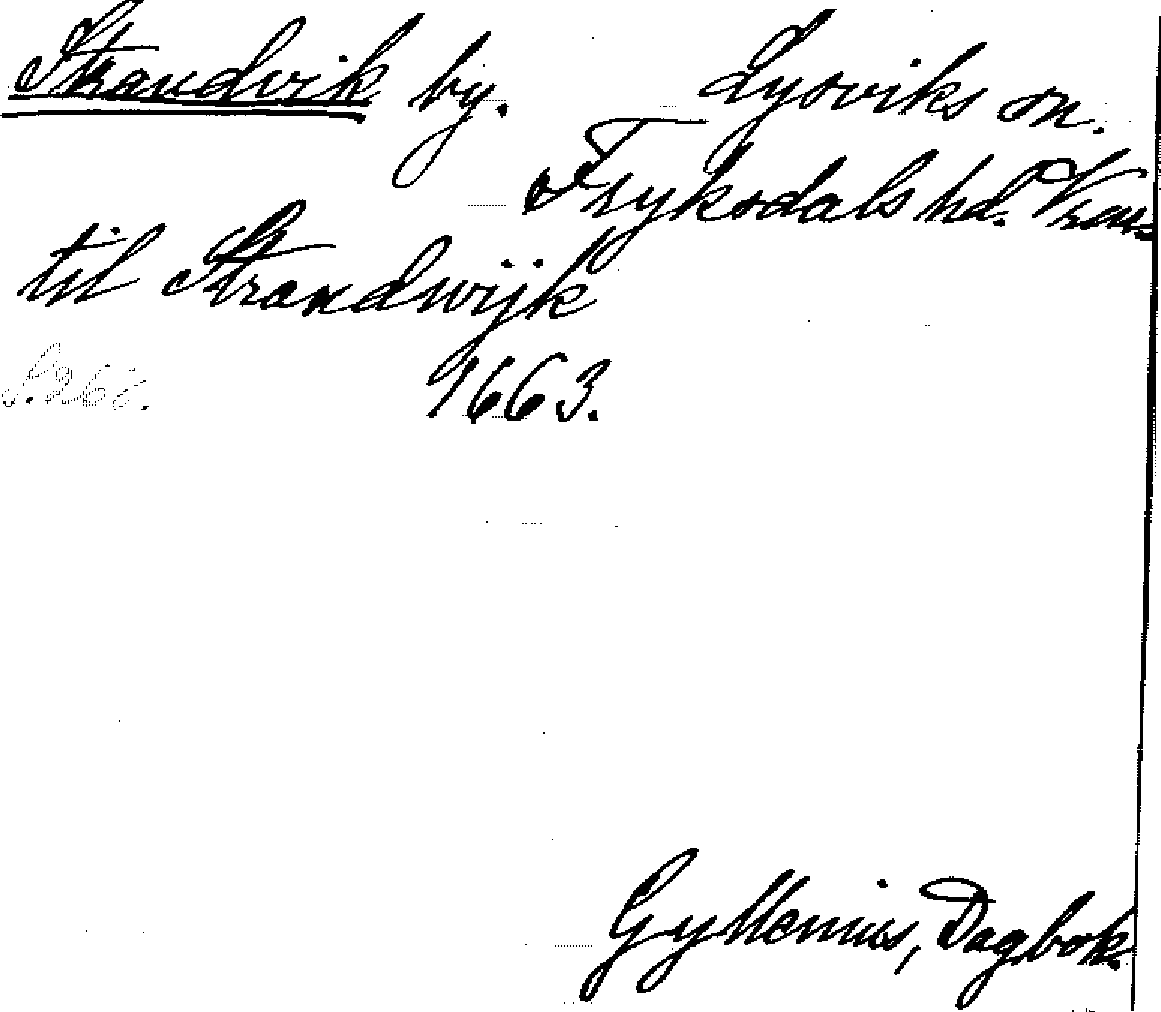 Strandvik by. Lysviks sn.
Fryksdals hd. Vrml.
til Strandwijk
S. 268. 1663.
Gyllenius, Dagbok.